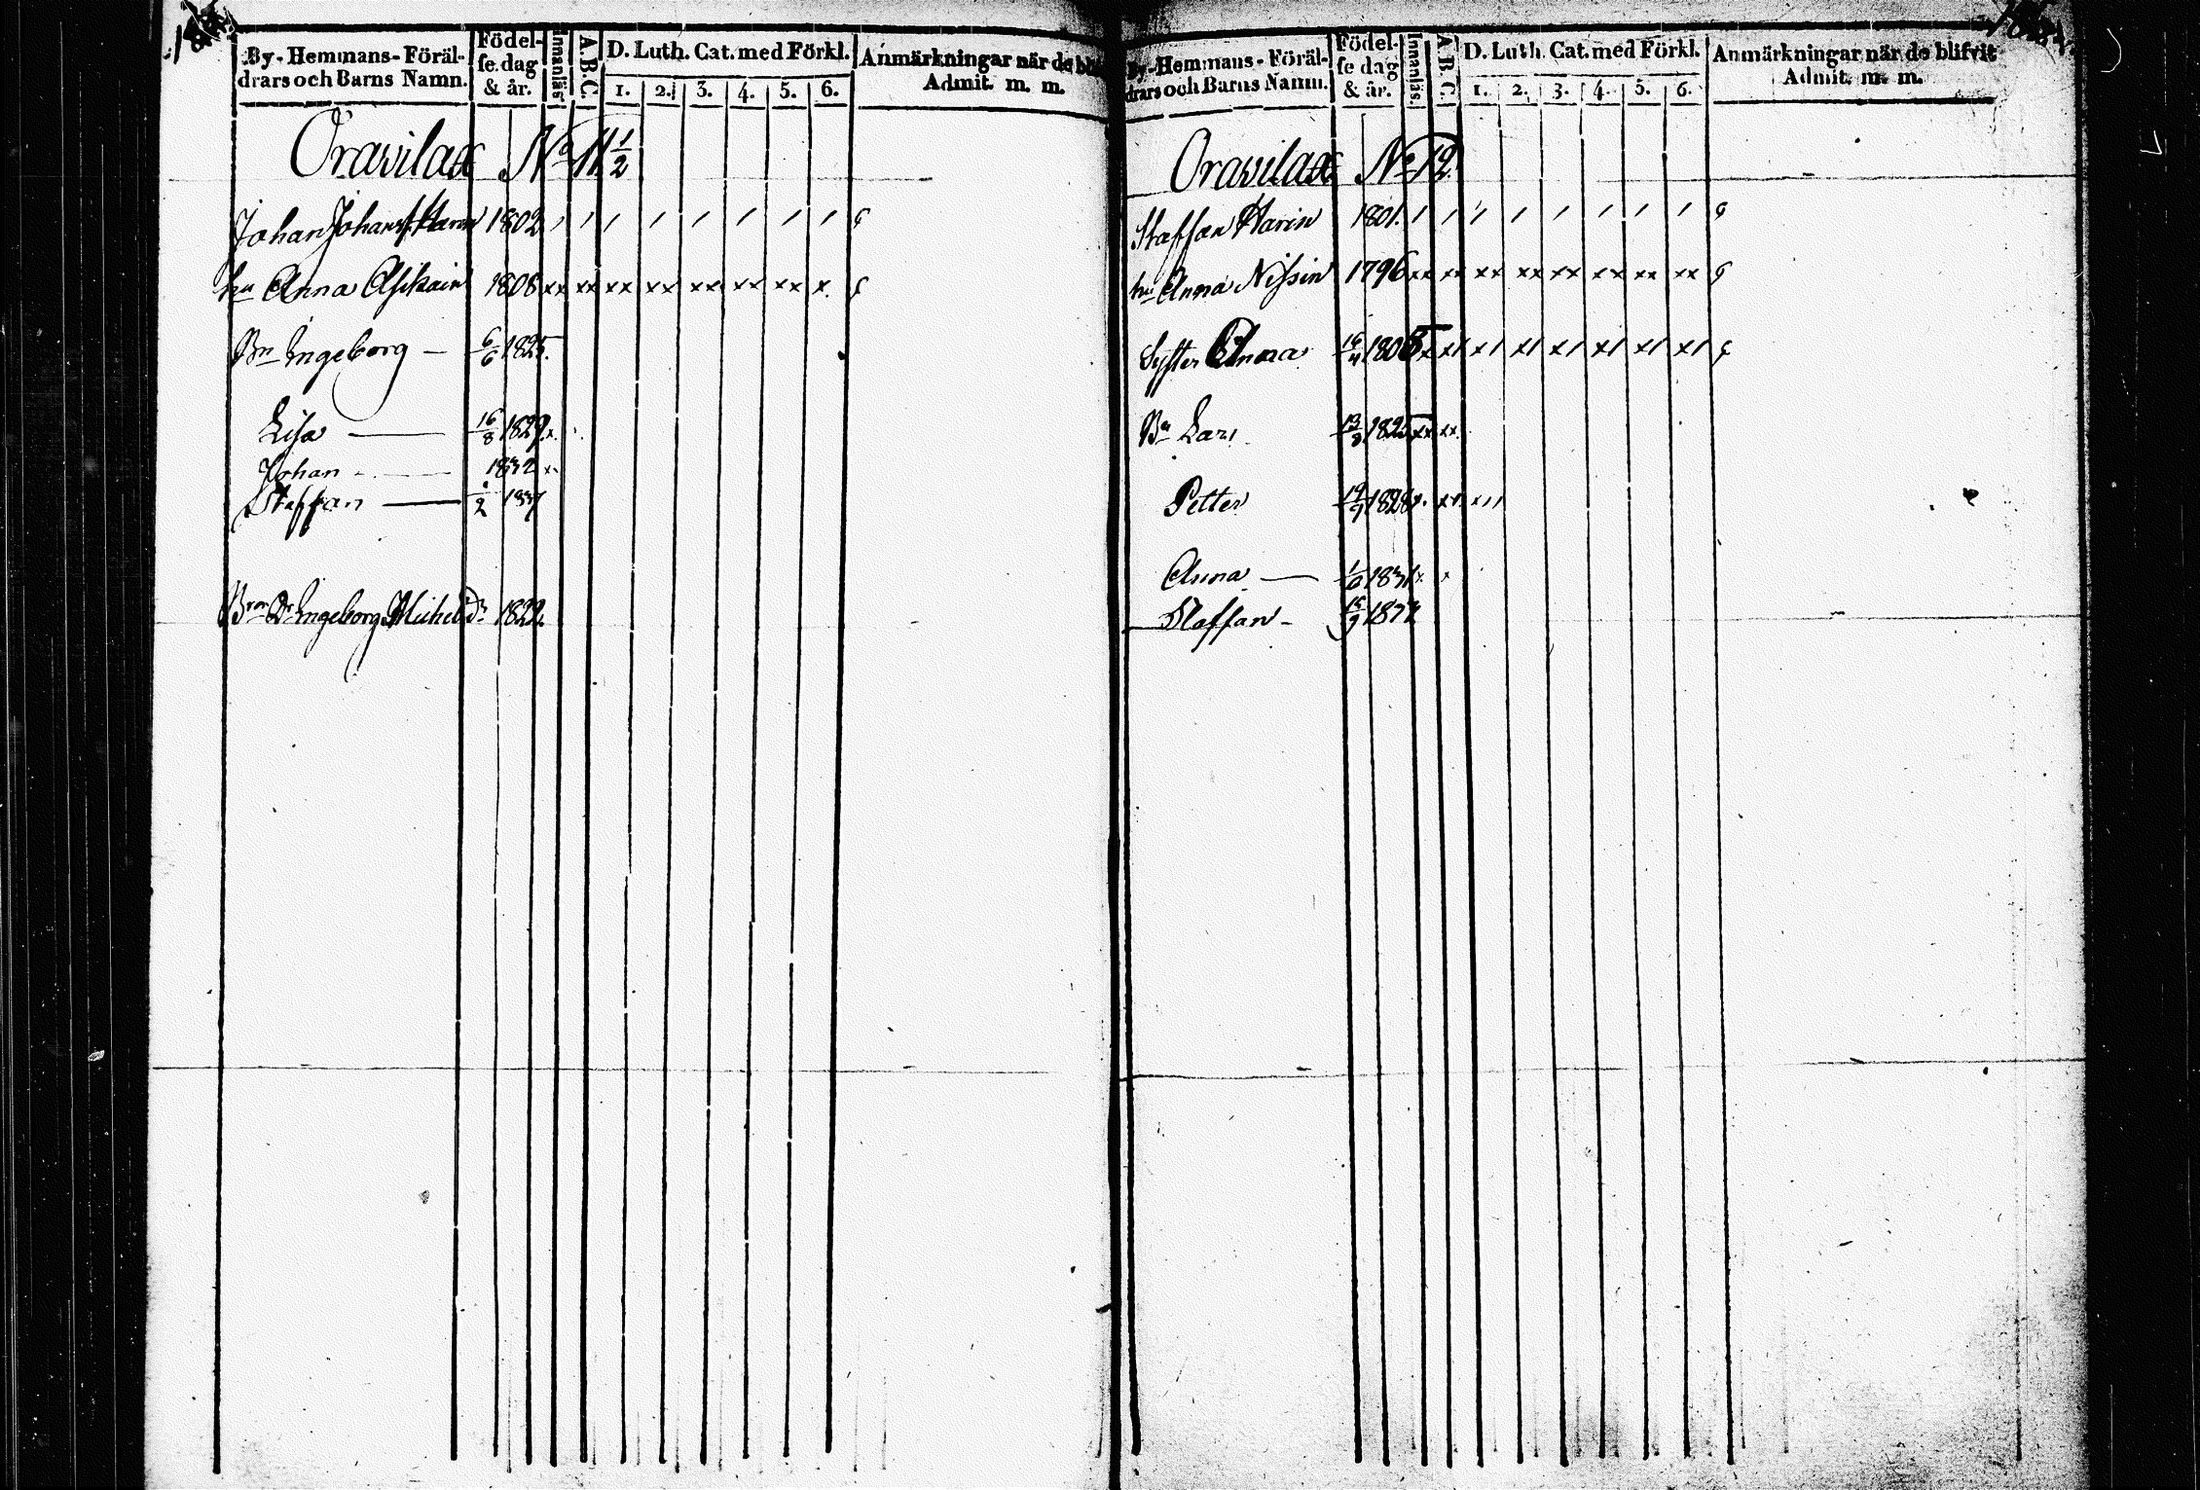 By-Hemmans-Föräl-
drars och Barns Namn.
Födel-
se.dag
& år.
Innanläs.
A.B.C.
D. Luth. Cat. med Förkl.
1. 2. 3. 4. 5. 6.
Anmärkningar när de
Admit. m. m.
Oravilax No 11 1/2
Johan Johanss. Harin 1802 / / / / / / / /
hu Anna Asikain 1808 xx xx xx xx xx xx xx x.
Bn Ingeborg — 6/6 1825.
Lisa — 16/8 1829 x.
Johan - — 1832 x
Staffan — 1/2 1837
Ingeborg Michelsdr 1822.
By-Hemmans-Föräl-
drars och Barns Namn.
Födel-
se dag
& år.
Innanläs.
A.B.C.
D. Luth. Cat. med Förkl.
1. 2. 3. 4. 5. 6.
Anmärkningar när de blifvit
Admit. m. m.
Oravilax No 12.
Staffan Harin 1801. / / / / / / / /
hu Anna Nissin 1796 xx xx xx xx xx xx xx xx
Syster Anna 16/4 1805 x x/ x/ x/ x/ x/ x/ x/
Bn Lars 1825 xx xx.
Petter 1828 x. xx. x//
Anna — 1831 x. x
Staffan -